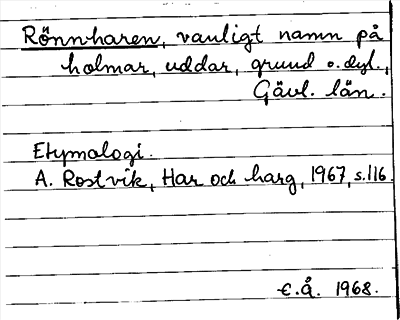 Rönnharen, vanligt namn på
holmar, uddar, grund o. dyl.,
Gävl. län.
Etymologi.
A. Rostvik, Har och harg, 1967, s. 116.
E.Å. 1968.